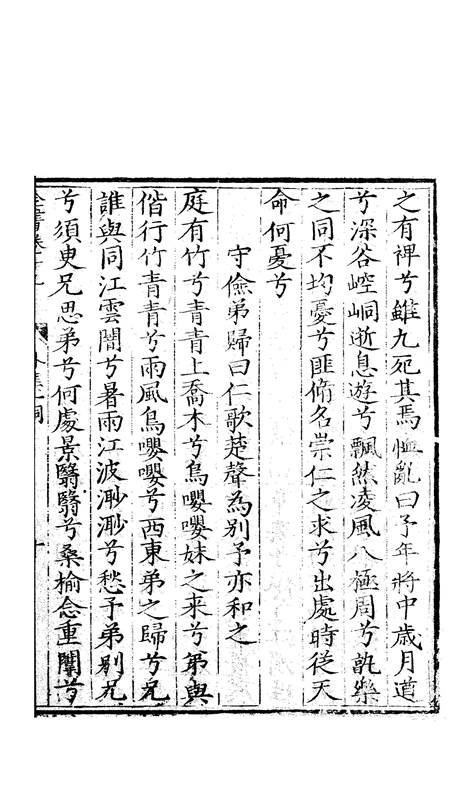 之有裨兮雖九死其焉恤亂曰予年將中歲月遒
兮深谷崆峒逝息遊兮飄然凌風八極周兮孰樂
之同不均憂兮匪脩名崇仁之求兮出處時從天
命何憂兮
守儉弟歸曰仁歌楚聲為別予亦和之
庭有竹兮青青上喬木兮鳥嚶嚶妹之来兮弟與
偕行竹青青兮雨風鳥嚶嚶兮西東弟之歸兮兄
誰與同江雲闇兮暑雨江波渺渺兮愁予弟别兄
兮須臾兄思弟兮何處景翳翳兮桑榆念重闈兮